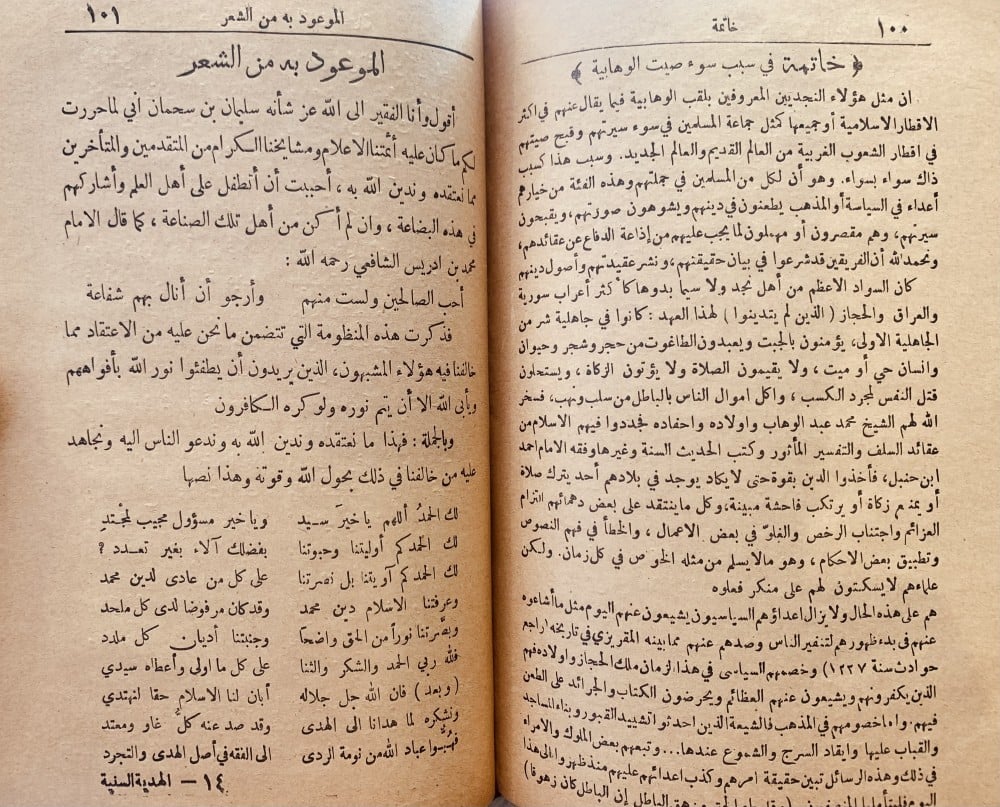 ١٠٠ خاتمة
﴿ خاتمة في سبب سوء صيت الوهابية ﴾
ان مثل هؤلاء النجديين المعروفين بلقب الوهابية فيما يقال عنهم في اكثر
الاقطار الاسلامية أو جميعها كمثل جماعة المسلمين في سوء سيرتهم وقبح صيتهم
في اقطار الشعوب الغربية من العالم القديم والعالم الجديد. وسبب هذا كسبب
ذاك سواء بسواء. وهو أن لكل من المسلمين في جملتهم وهذه الفئة من خيارهم
أعداء في السياسة أو المذهب يطعنون في دينهم ويشوهون صورتهم، ويقبحون
سيرتهم، وهم مقصرون أو مهملون لما يجب عليهم من إذاعة الدفاع عن عقائدهم،
ونحمد الله أن الفريقين قد شرعوا في بيان حقيقتهم، ونشر عقيدتهم وأصول دينهم
كان السواد الاعظم من أهل نجد ولا سيما بدوها كأكثر أعراب سورية
والعراق والحجاز ( الذين لم يتدينوا ) لهذا العهد : كانوا في جاهلية شر من
الجاهلية الاولى، يؤمنون بالجبت ويعبدون الطاغوت من حجر وشجر وحيوان
وانسان حي أو ميت ، ولا يقيمون الصلاة ولا يؤتون الزكاة ، ويستحلون
قتل النفس لمجرد الكسب ، واكل اموال الناس بالباطل من سلب ونهب، فسخر
الله لهم الشيخ محمد عبد الوهاب واولاده واحفاده فجددوا فيهم الاسلام من
عقائد السلف والتفسير المأثور وكتب الحديث السنة وغيرها وفقه الامام احمد
ابن حنبل، فأخذوا الدين بقوة حتى لا يكاد يوجد في بلادهم أحد يترك صلاة
أو يمنع زكاة أو يرتكب فاحشة مبينة، وكل ما ينتقد على بعض دهمائهم التزام
العزائم واجتناب الرخص والغلوّ في بعض الاعمال ، والخطأ في فهم النصوص
وتطبيق بعض الاحكام ، وهو مالا يسلم من مثله الخو ص في كل زمان. ولكن
علماءهم لا يسكتون لهم على منكر فعلوه
هم على هذه الحال ولا يزال اعداؤهم السياسيون يشيعون عنهم اليوم مثل ما أشاعوه
عنهم في بدء ظهورهم لتنفير الناس وصدهم عنهم مما بينه المقريزي في تاريخه (راجع
حوادث سنة ١٢٢٧) وخصمهم السياسي في هذا الزمان ملك الحجاز واولاده فهم
الذين يكفرونهم ويشيعون عنهم العظائم ويحرضون الكتاب والجرائد على الطعن
فيهم. واما خصومهم في المذهب فالشيعة الذين احدثوا تشييد القبور وبناء المساجد
والقباب عليها وايقاد السرج والشموع عندها... وتبعهم بعض الملوك والامراء
في ذلك وهذه الرسائل تبين حقيقة امرهم وكذب اعدائهم عليهم منذ ظهروا الى هذا
الباطل إن الباطل كان زهوقا)
الموعود به من الشعر ١٠١
الموعود به من الشعر
أقول وأنا الفقير الى الله عز شأنه سليمان بن سحمان اني لما حررت
لكم ما كان عليه أئمتنا الاعلام ومشايخنا الكرام من المتقدمين والمتأخرين
مما نعتقده وندين الله به ، أحببت أن أتطفل على أهل العلم وأشاركهم
في هذه البضاعة ، وان لم أكن من أهل تلك الصناعة ، كما قال الامام
محمد بن ادريس الشافعي رحمه الله :
أحب الصالحين ولست منهم وأرجو أن أنال بهم شفاعة
فذكرت هذه المنظومة التي تتضمن ما نحن عليه من الاعتقاد مما
خالفنا فيه هؤلاء المشبهون، الذين يريدون أن يطفئوا نور الله بأفواههم
ويأبى الله الا أن يتم نوره ولو كره الكافرون
وبالجملة : فهذا ما نعتقده وندين الله به وندعو الناس اليه ونجاهد
عليه من خالفنا في ذلك بحول الله وقوته وهذا نصها
لك الحمدُ أللهم ياخيرَ سـيد وياخير مسؤول مجيب لمجتدِ
لك الحمد كم أوليتنا وحبوتنا بفضلك آلاء بغير تعـدد ؟
لك الحمد كم آويتنا بل نصرتنا على كل من عادى لدين محمد
وعرفتنا الاسلام دين محمد وقد كان مرفوضا لدى كل ملحد
وبصَّرتنا نوراً من الحق واضحاً وجنبتنا أديان كل ملدد
فلله ربي الحمد والشكر والثنا على كل ما اولى وأعطاه سيدي
(وبعد) فان الله جل جلاله أبان لنا الاسلام حقا لنهتدي
ونشكره لما هدانا الى الهدى وقد صد عنه كلُّ غاو ومعتد
فهبُّوا عباد الله من نومة الردى الى الفقه في أصل الهدى والتجرد
١٤ — الهدية السنية